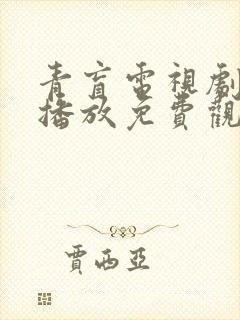 青盲電視劇
播放免費觀
賈西亞